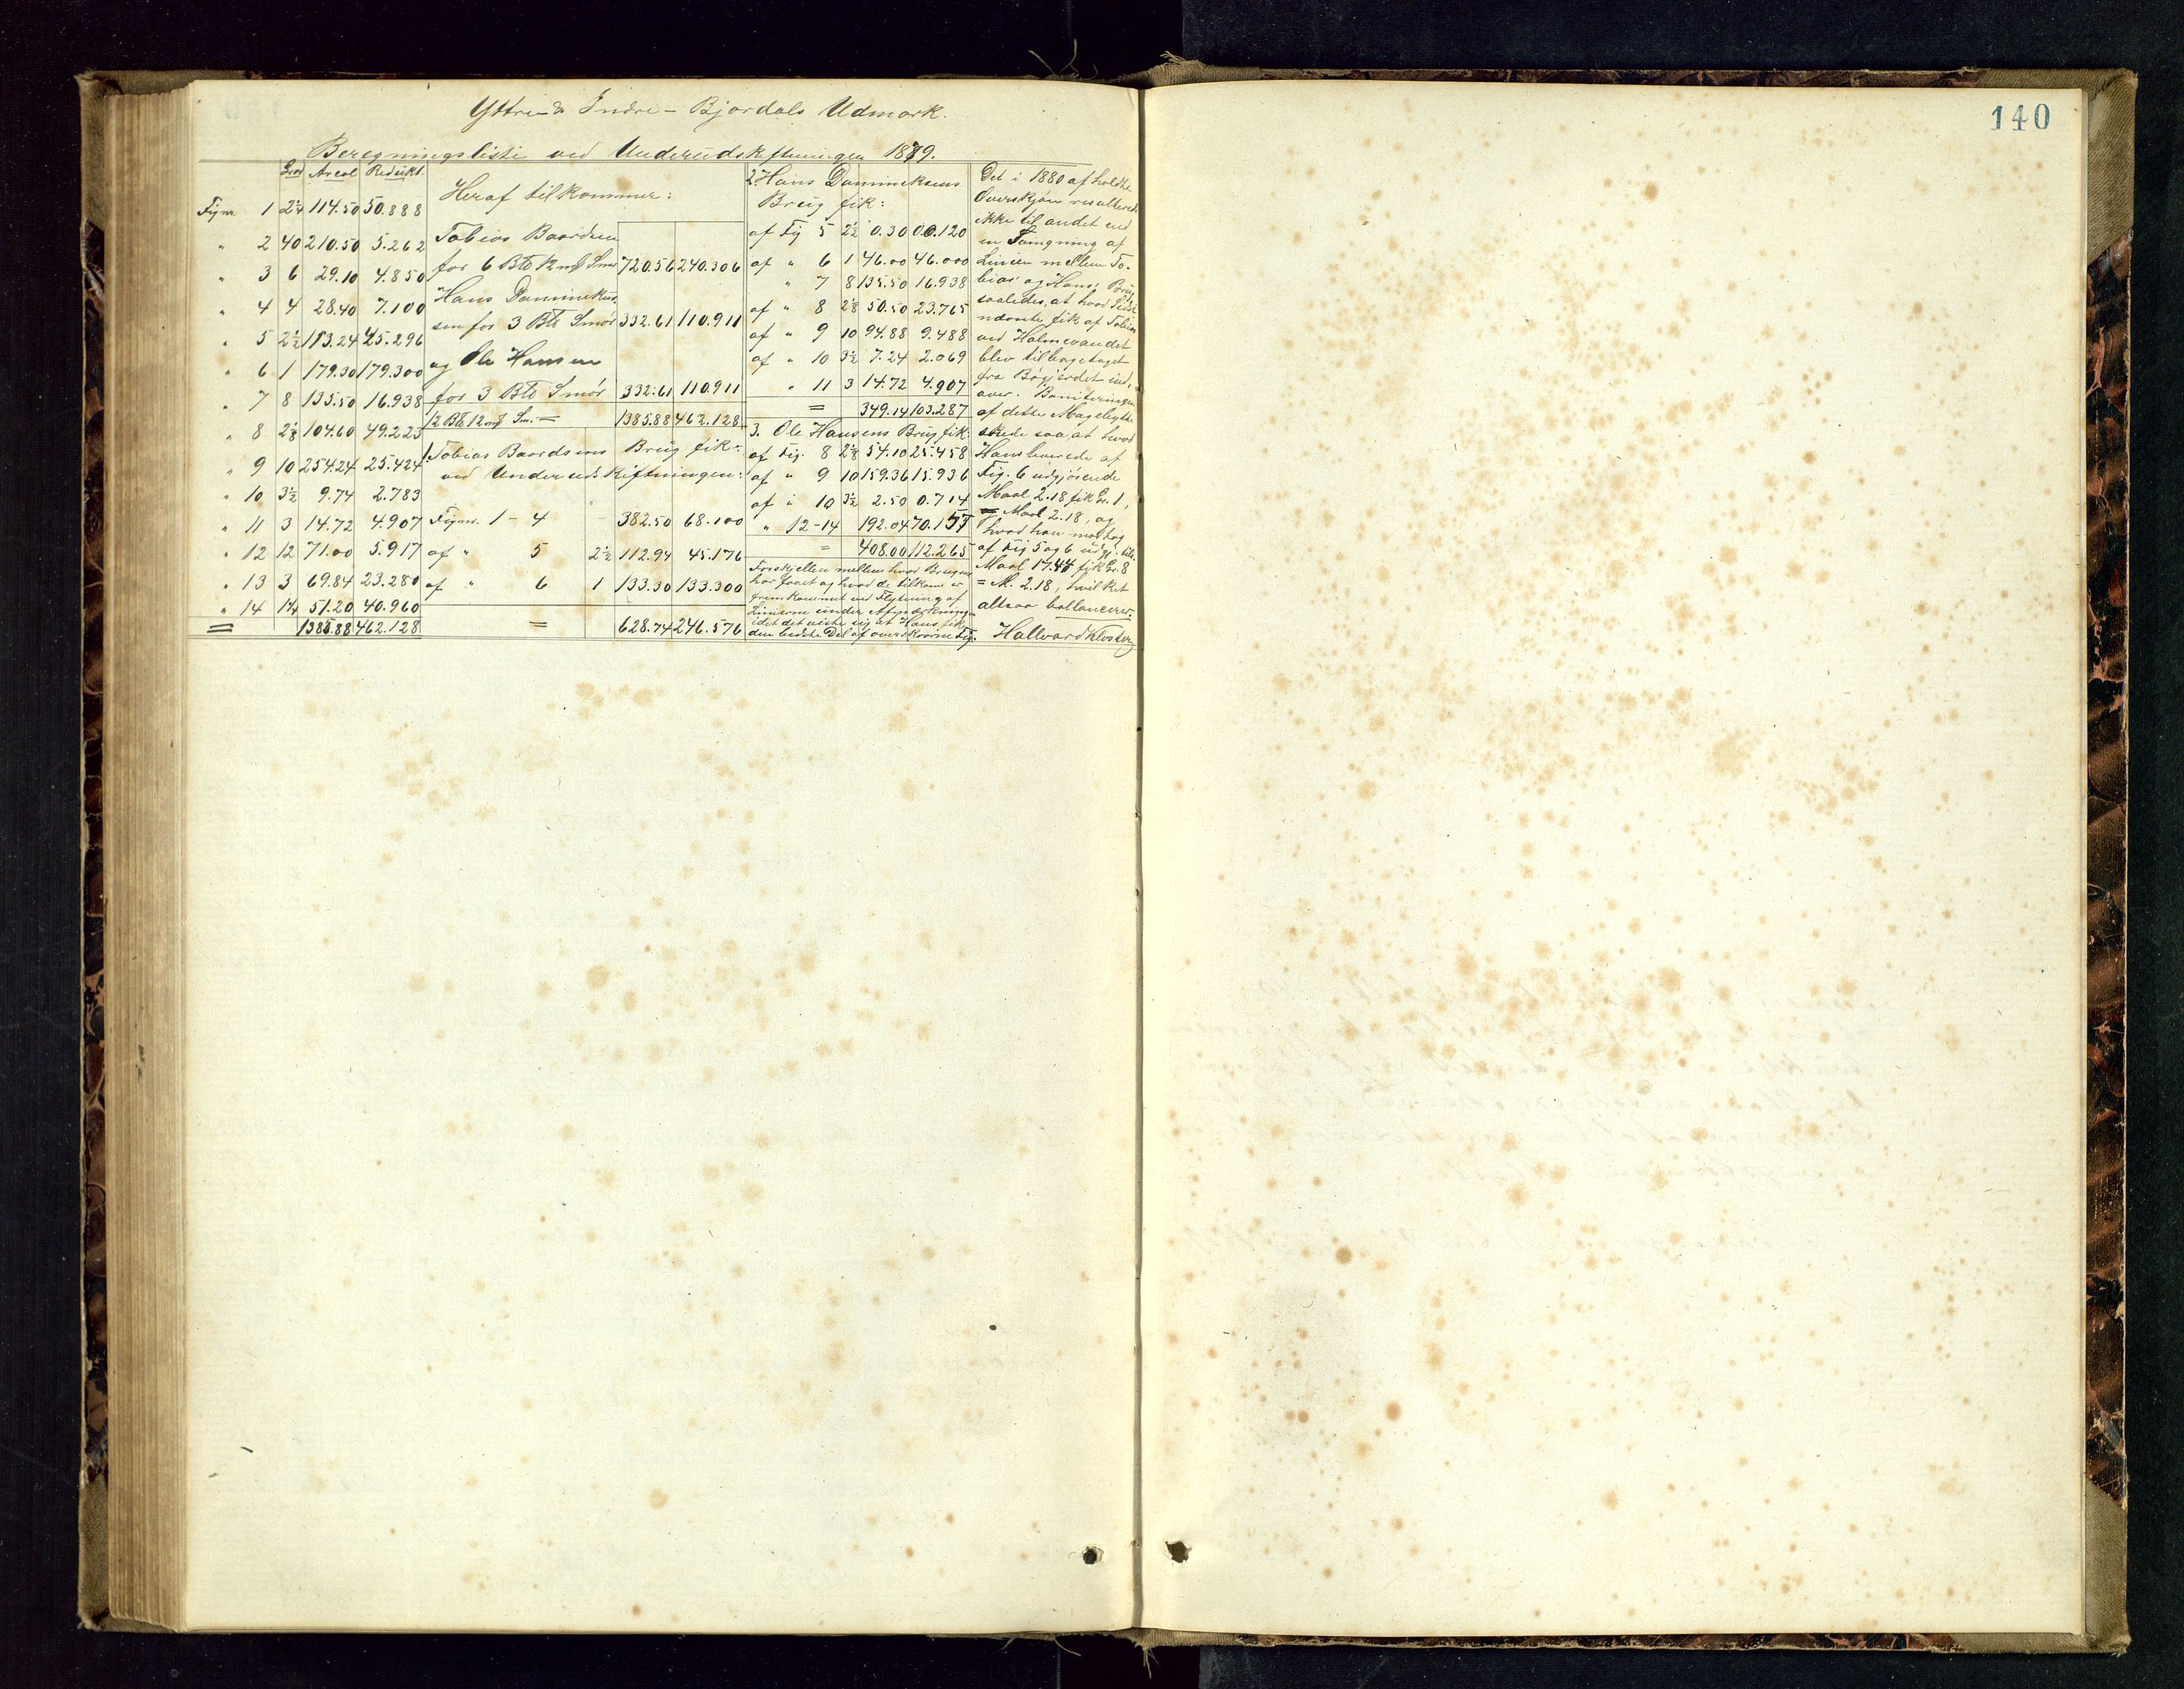 Yttre- & Indre- Bjordals Udmark.
Beregningsliste ved Underudskiftningen 1879.
Grad Areal Redukt.
Figur 1 2¼ 114.50 50.888
" 2 40 210.50 5.262
" 3 6 29.10 4.850
" 4 4 28.40 7.100
" 5 2½ 113.24 45.296
" 6 1 179.30 179.300
" 7 8 135.50 16.938
" 8 2⅛ 104.60 49.223
" 9 10 254.24 25.424
" 10 3½ 9.74 2.783
" 11 3 14.72 4.907
" 12 12 71.00 5.917
" 13 3 69.84 23.280
" 14 1¼ 51.20 40.960
= 1385.88 462.128
Heraf tilkommer:
Tobias Baardsen
for 6 Bto Smør 720.56 240.306
Hans Danninek
sen for 3 Bto Smør 332.61 110.911
og Ole Hansen
for 3 Bto Smør 332.61 110.911
12 Bto 12 Sm. = 1385.88 462.128
1. Tobias Baardsens Brug fik
ved Underudskiftningen:
Figur. 1 - 4 382.50 68.100
af " 5 2½ 112.94 45.176
af " 6 1 133.30 133.300
= 628.74 246.576
2 Hans Dannineksens
Brug fik:
af Fig 5 2½ 0.30 0.0.120
af " 6 1 46.00 46.000
" 7 8 135.50 16.938
af " 8 2⅛ 50.50 23.765
af " 9 10 94.88 9.488
af " 10 3½ 7.24 2.069
" 11 3 14.72 4.907
= 349.14 103.287
3. Ole Hansens Brug fik:
af Fig. 8 2⅛ 54.10 25.458
af " 9 10 159.36 15.936
af " 10 3½ 2.50 0.714
" 12-14 192.04 70.157
= 408.00 112.265
Forskjellen mellem hvad Brugene
har faaet og hvad de tilkom er
fremkommet ved Flytning af
Linierne under Afmærkningen
idet det viste sig at Hans fik
den bedste Del af overskaarne Fig.
Det i 1880 afholdte
Overskjøn resulterede
ikke til andet end
en Svingning af
Linien mellem To-
bias' og Hans' Brug
saaledes, at hvad Sidst
nævnte fik af Tobias
ved Holmevandet
blev tilbagetaget
fra Bøgjerdet ind-
over. Boniteringen
af dette Magebytte
skede saa, at hvad
Hans leverede af
Fig. 6 udgjørende
Maal 2.18 fik Gr. 1,
= Maal 2.18, og
hvad han modtog
af Fig 5 og 6 udgj.
Maal 17.44 fik Gr. 8
= M. 2.18, hvilket
altsaa ballancerer.
Hallvard Kloster
140